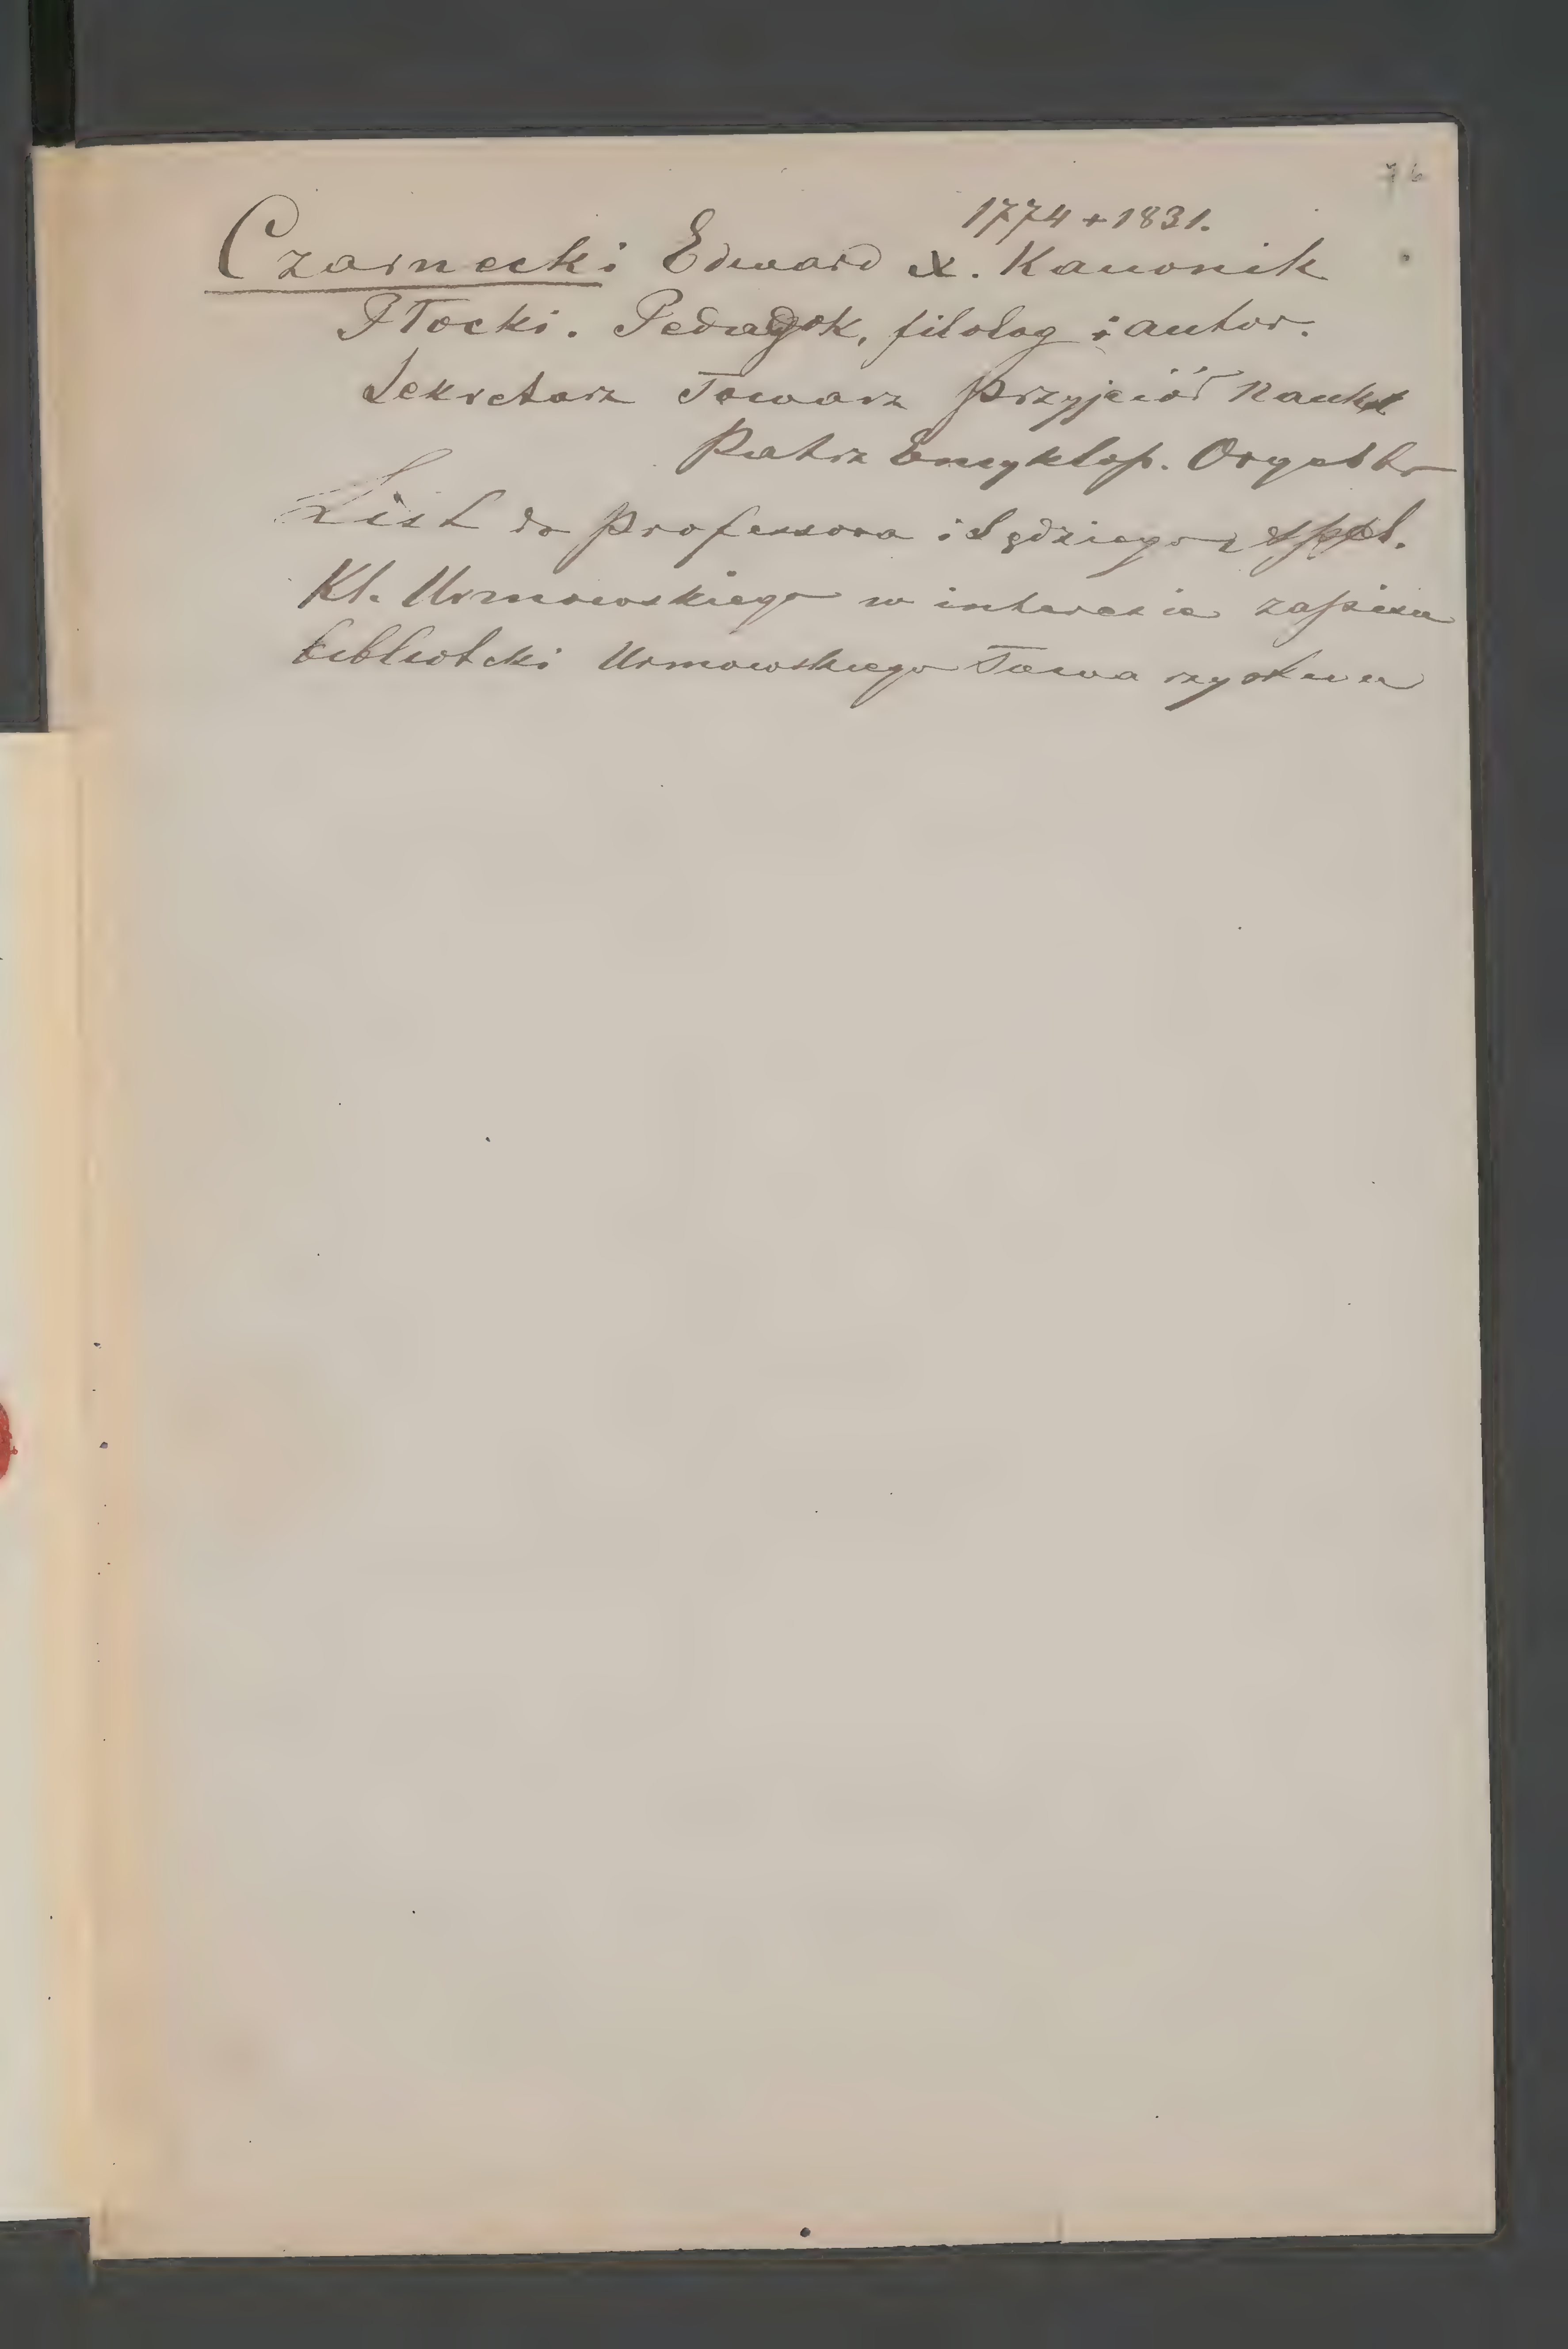 76
1774 + 1831.
Czarnecki Edward X. Kanonik
Płocki. Pedagok, filolog i autor.
Sekretarz Towarz Przyjeiół Nauk
Patrz Encyklop. Orgelbr
List do Professora i Sędziego appel.
Kl. Urmowskiego w interesie zapisu
biblioteki Urmowskiego Towarzystwu